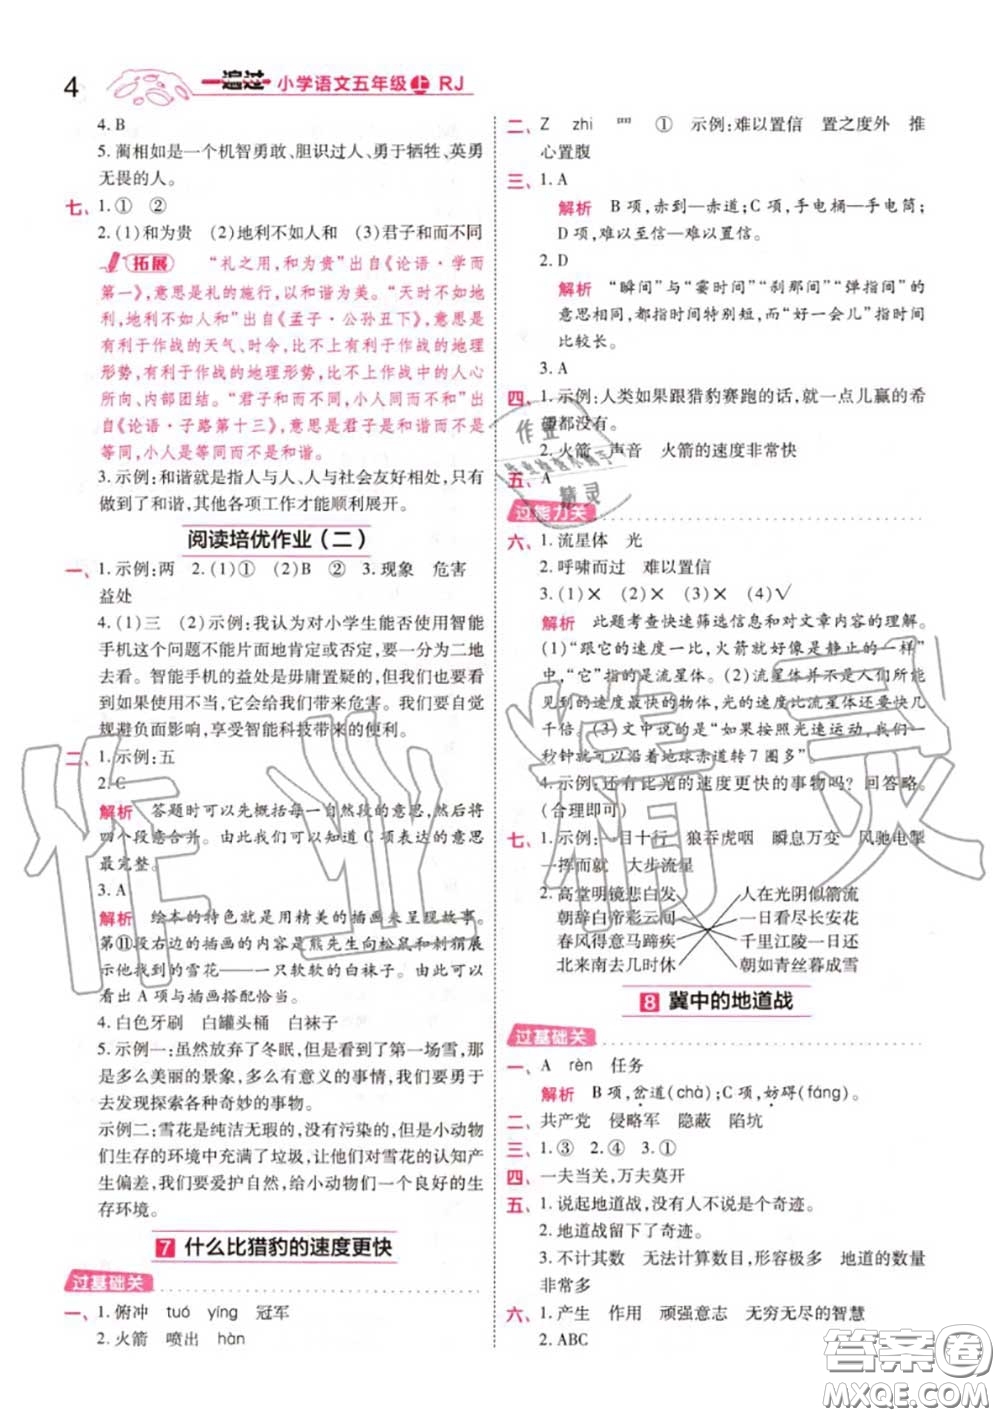 4
一遍过 小学语文五年级 上 RJ
4. B
5. 蔺相如是一个机智勇敢、胆识过人、勇于牺牲、英勇
无畏的人。
七、1. ① ②
2. (1)和为贵 (2)地利不如人和 (3)君子和而不同
拓展 “礼之用,和为贵”出自《论语·学而
第一》,意思是礼的施行,以和谐为美。“天时不如地
利,地利不如人和”出自《孟子·公孙丑下》,意思是
有利于作战的天气、时令,比不上有利于作战的地理
形势,有利于作战的地理形势,比不上作战中的人心
所向、内部团结。“君子和而不同,小人同而不和”出
自《论语·子路第十三》,意思是君子是和谐而不是
等同,小人是等同而不是和谐。
3. 示例:和谐就是指人与人、人与社会友好相处。只有
做到了和谐,其他各项工作才能顺利展开。
阅读培优作业(二)
一、1. 示例:两 2. (1)① (2)B ② 3. 现象 危害
益处
4. (1)三 (2)示例:我认为对小学生能否使用智能
手机这个问题不能片面地肯定或否定,要一分为二地
去看。智能手机的益处是毋庸置疑的,但我们也要看
到如果使用不当,它会给我们带来危害。我们要自觉
规避负面影响,享受智能科技带来的便利。
二、1. 示例:五
2. C
解析 答题时可以先概括每一自然段的意思,然后将
四个段意合并。由此我们可以知道C项表达的意思
最完整。
3. A
解析 绘本的特色就是用精美的插画来呈现故事。
第⑪段右边的插画的内容是熊先生向松鼠和刺猬展
示他找到的雪花——一只软软的白袜子。由此可以
看出A项与插画搭配恰当。
4. 白色牙刷 白罐头桶 白袜子
5. 示例一:虽然放弃了冬眠,但是看到了第一场雪,那
是多么美丽的景象,多么有意义的事情,我们要勇于
去发现探索各种奇妙的事物。
示例二:雪花是纯洁无瑕的,没有污染的,但是小动物
们生存的环境中充满了垃圾,让他们对雪花的认知产
生偏差,我们要爱护自然,给小动物们一个良好的生
存环境。
7 什么比猎豹的速度更快
过基础关
一、1. 俯冲 tuó yíng 冠军
2. 火箭 喷出 hàn
二、Z zhi 罒 ① 示例:难以置信 置之度外 推
心置腹
三、1. A
解析 B项,赤到—赤道;C项,手电桶—手电筒;
D项,难以至信—难以置信。
2. D
解析 “瞬间”与“霎时间”“刹那间”“弹指间”的
意思相同,都指时间特别短,而“好一会儿”指时间
比较长。
3. A
四、1. 示例:人类如果跟猎豹赛跑的话,就一点儿赢的希
望都没有。
2. 火箭 声音 火箭的速度非常快
五、A
过能力关
六、1. 流星体 光
2. 呼啸而过 难以置信
3. (1)× (2)× (3)× (4)√
解析 此题考查快速筛选信息和对文章内容的理解。
(1)“跟它的速度相比,火箭就好像是静止的一样”
中,“它”指的是流星体。(2)流星体并不是人们所能
见到的速度最快的物体,光的速度比流星体还要快几
千倍。(3)文中说的是“如果按照光速运动,我们一
秒钟就可以沿着地球赤道转7圈多”
4. 示例:还有比光的速度更快的事物吗? 回答略。
(合理即可)
七、1. 示例:一目十行 狼吞虎咽 瞬息万变 风驰电掣
一挥而就 大步流星
2. 高堂明镜悲白发 人在光阴似箭流
朝辞白帝彩云间 一日看尽长安花
春风得意马蹄疾 千里江陵一日还
北来南去几时休 朝如青丝暮成雪
8 冀中的地道战
过基础关
一、A rèn 任务
解析 B项,岔道(chà);C项,妨碍(fáng)。
二、共产党 侵略军 隐蔽 陷坑
三、1. ③ 2. ④ 3. ①
四、一夫当关,万夫莫开
五、1. 说起地道战,没有人不说是个奇迹。
2. 地道战留下了奇迹。
3. 不计其数 无法计算数目,形容极多 地道的数量
非常多
六、1. 产生 作用 顽强意志 无穷无尽的智慧
2. ABC
作业精灵
作业
作业检查小帮手
精灵
答案圈
MXQE.COM